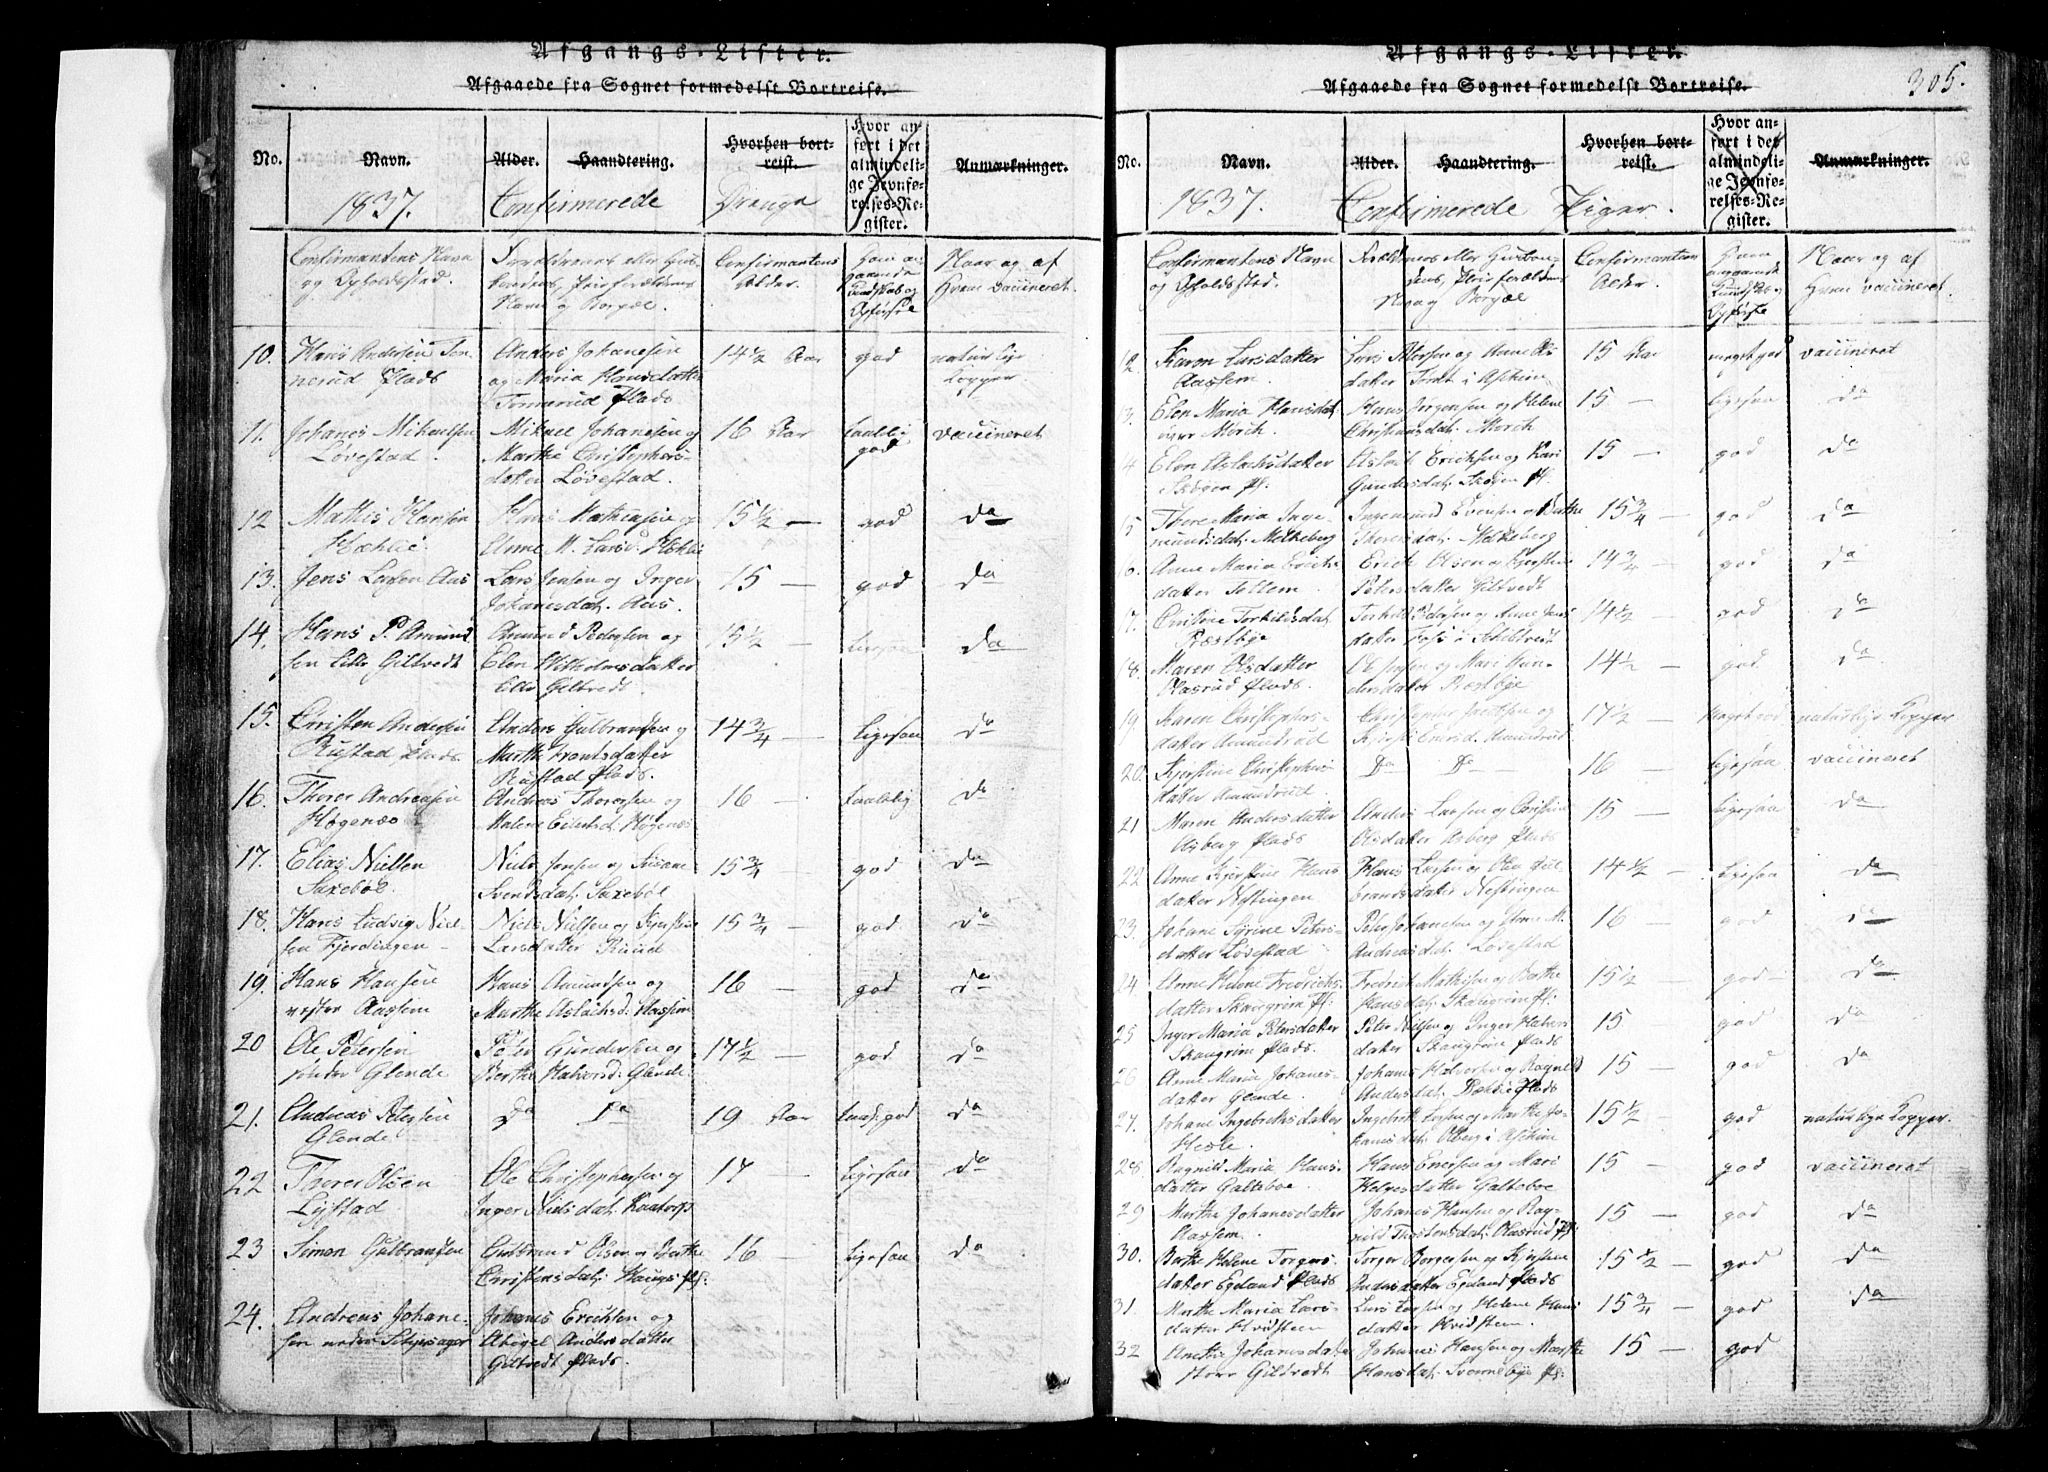 Afgangs-Lister.
Afgaaede fra Sognet formedelst Bortreise.
No.
Navn.
Alder.
Haandtering.
Hvorhen bort-
reist.
Hvor an-
ført i det
almindeli-
ge Jevnfø-
relses-Re-
gister.
Anmærkninger.
1837. Confirmerede Drenge
Confirmantens Navn
og Opholdssted.
Forældrenes eller Huus-
bondens, Pleieforældrenes
Navn og Boepæl.
Confirmantens
Alder.
Dom an-
gaaende
Kundskab og
Opførsel
Naar og af
Hvem vaccineret.
10. Hans Andersen Ton-
nerud Plads
Anders Johanesen
og Maria Hansdatter
Tonnerud Plads
14 1/2 Aar
god
naturlige
Kopper.
11. Johanes Mikaelsen
Løvestad.
Mikael Johanesen og
Marthe Christophers-
datter Løvestad.
16 Aar
taalelig
god
vaccineret
12 Mathis Hansen
Hæhlie.
Hans Mathiasen og
Anne M. Larsd. Hæhlie
15 1/2 —
god
da
13. Jens Larsen Aas
Lars Jensen og Inger
Johanesdat. Aas.
15 —
god
da
14. Hans P. Amund-
sen Lille Giltvedt
Amund Pedersen og
Elen Wilhelmsdatter
Lille Giltvedt
15 1/2 —
Ligesaa
da
15. Christen Andersen
Rustad Plads
Anders Gulbransen og
Marthe Frantsdatter
Rustad Plads.
14 3/4 —
Ligesaa
da
16. Thorer Andreasen
Høgenæs
Andreas Thoresen og
Malene Eilertsd. Høgenæs
16 —
taalelig
da
17. Elias Nielsen
Saxebøl.
Niels Jensen og Susane
Svendsdat. Saxebøl
15 3/4 —
god
da
18. Hans Ludvig Niel-
sen Fjerdingen
Niels Nielsen og Kjerstine
Larsdatter Ruud
15 3/4 —
god
da
19. Hans Hansen
vestre Aassem
Hans Amundsen og
Marthe Aslachsd. Aassem
16 —
god
da
20 Ole Petersen
søndre Glende
Peter Gundersen og
Berthe Halvorsd. Glende.
17 1/2 —
god
da
21. Andreas Petersen
Glende
Do Do
19 Aar
god
da
22 Thorer Olsen
Lystad
Ole Christophersen og
Inger Nielsdat.
17 —
Ligesaa
da
23 Simon Gulbransen
Gulbrand Olsen og Berthe
Christensdat. Haugs Pl.
16 —
Ligesaa
da
24. Andreas Johane-
sen nedre
Johanes Erichsen og
Abigel Andersdatter
Giltvedt Plads.
Afgangs-Lister.
305.
Afgaaede fra Sognet formedelst Bortreise.
No.
Navn.
Alder.
Haandtering.
Hvorhen bort-
reist.
Hvor an-
ført i det
almindeli-
ge Jevnfø-
relses-Re-
gister.
Anmærkninger.
1837. Confirmerede Piger.
Confirmantens Navn
og Opholdssted
Forældrenes eller Huusbon-
dens, Pleieforældrenes
Navn og Boepæl
Confirmantens
Alder.
Dom
angaaende
Kundskab og
Opførsel
Naar og af
Hvem vaccineret.
12. Karen Larsdatter
Aassem.
Lars Petersen og Anne Ols-
datter Tomt i Aschim
15 Aar
meget god
vaccineret
3. Elen Maria Hansdat.
øvre Morch.
Hans Jørgensen og Helene
Christiansdat. Morch
15 —
Ligesaa
da
4 Elen Aslachsdatter
Skoien Pl.
Aslach Erichsen og Kari
Gundersdat. Skoien Pl.
15 —
god
da
5 Thore Maria Inge-
mundsdat. Melkeberg
Ingemund Evensen og Berthe
Thoresdat. Melkeberg
15 3/4 —
god
da
6. Anne Maria Erichs-
datter Sollem.
Erich Olsen og Kjerstine
Petersdatter Giltvedt
14 3/4 —
god
da
17. Christine Torkildsdat.
Præstbye
Torkild Pedersen og Anne Jens-
datter Foss i Schiltvedt
14 1/2 —
god
da
18. Maren Olsdatter
Olasrud Plads.
Ole Jensen og Mari Gun-
dersdatter Ræstbye
14 1/2 —
god
da
19 Karen Christophers-
datter Amundrud
Christopher Jacobsen og
Kjersti Amundrud
17 1/2 —
Meget god
naturlige Kopper
20. Kjerstine Christophers-
datter Amundrud.
Do Do
16 —
Ligesaa
vaccineret
21 Maren Andersdatter
Asberg Plads.
Anders Larsen og Christine
Olsdatter Asberg Plads
15 —
Ligesaa
da
22 Anne Kjerstine Hans-
datter Nestingen
Hans Larsen og Olea Gul-
brandsdatter Nestingen
14 1/2 —
Ligesaa
da
23. Johane Syrine Peters-
datter Løvestad
Peter Johanesen og M.
Andreasdat. Løvestad
16 —
god
da
24. Anne Helene Fredrichs-
datter Skaugrim Pl.
Fredrich Mathisen og Berthe
Hansdat. Skaugrim Pl.
15 1/2 —
god
da
25 Inger Maria Petersdatter
Skaugrim Plads.
Peter Nielsen og Inger Halvors-
datter Skaugrim Plads
15
god
da
26 Anne Maria Johanes-
datter Glende.
Johanes Halvorsen og Ragnild
Andersdat. Plads
15 —
god
da
27. Johane Ingebrethsdatter
Hesle.
Ingebreth Larsen og Marthe Jo-
hanesdat. Olberg i Aschim
15 1/2 —
god
naturlige Kopper.
28. Ragnild Maria Hans-
datter Galteboe.
Hans Enersen og Mari
Helgesdatter Galteboe
15 —
god
vaccineret
29 Marthe Johanesdatter
Aassem.
Johanes Hansen og Rag-
nild Thostensdat. Olasrud Pl.
15 —
god
da
30. Berthe Helene Torgers-
datter Egeland Plads
Torger Borgersen og Kjerstine
Andersdatter Egeland Plads
15 1/2 —
god
da
31. Marthe Maria Lars-
datter Hvidsteen
Lars Larsen og Helene Hans-
datter Hvidsteen.
15 3/4 —
god
da
32 Anthe Johanesdatter
store Gildvedt
Johanes Hansen og Marthe
Hansdat. Svennebye Pl.
15 —
god